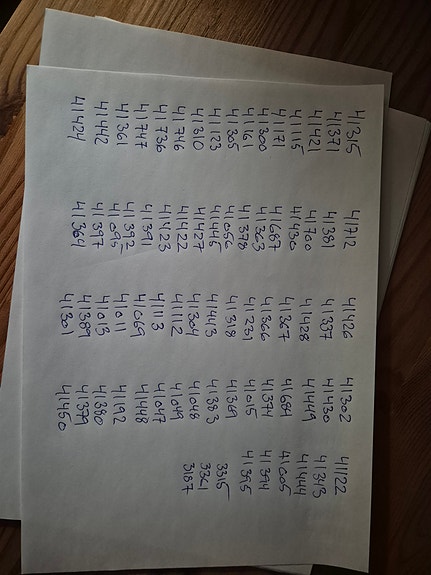 41315
41371
41421
41115
41171
41300
41161
41305
41123
41310
41746
41736
41747
41361
41442
41424
41712
41381
41700
41430
41687
41363
41378
41056
41445
41427
41422
41423
41391
41392
41095
41397
41364
41426
41337
41428
41367
41366
41231
41318
41443
41304
41112
41113
41069
41011
41013
41389
41301
41302
41430
41449
41684
41374
41015
41369
41383
41048
41049
41047
41448
41192
41380
41379
41450
41122
41343
41444
41605
41394
41395
3315
3361
3187